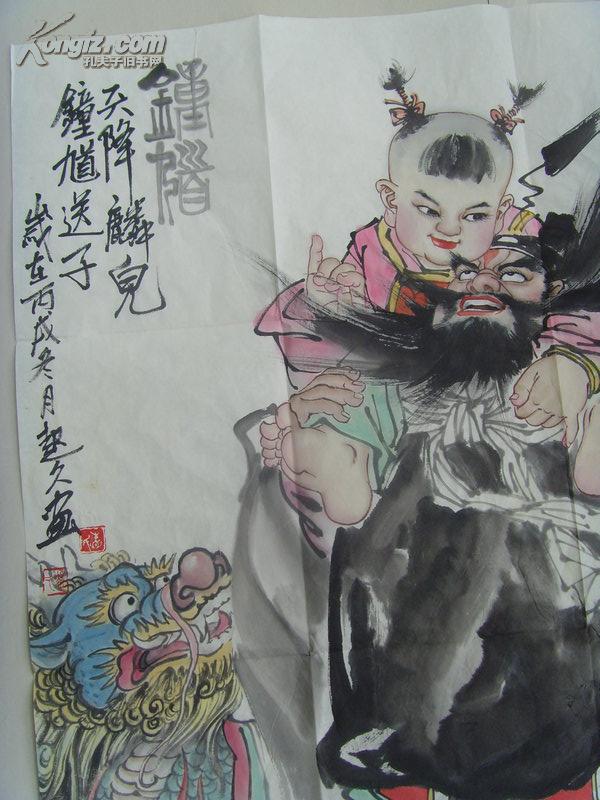 Kongfz.com
孔夫子旧书网
鍾馗
天降麟兒
鐘馗送子
歲在丙戌冬月趙久画